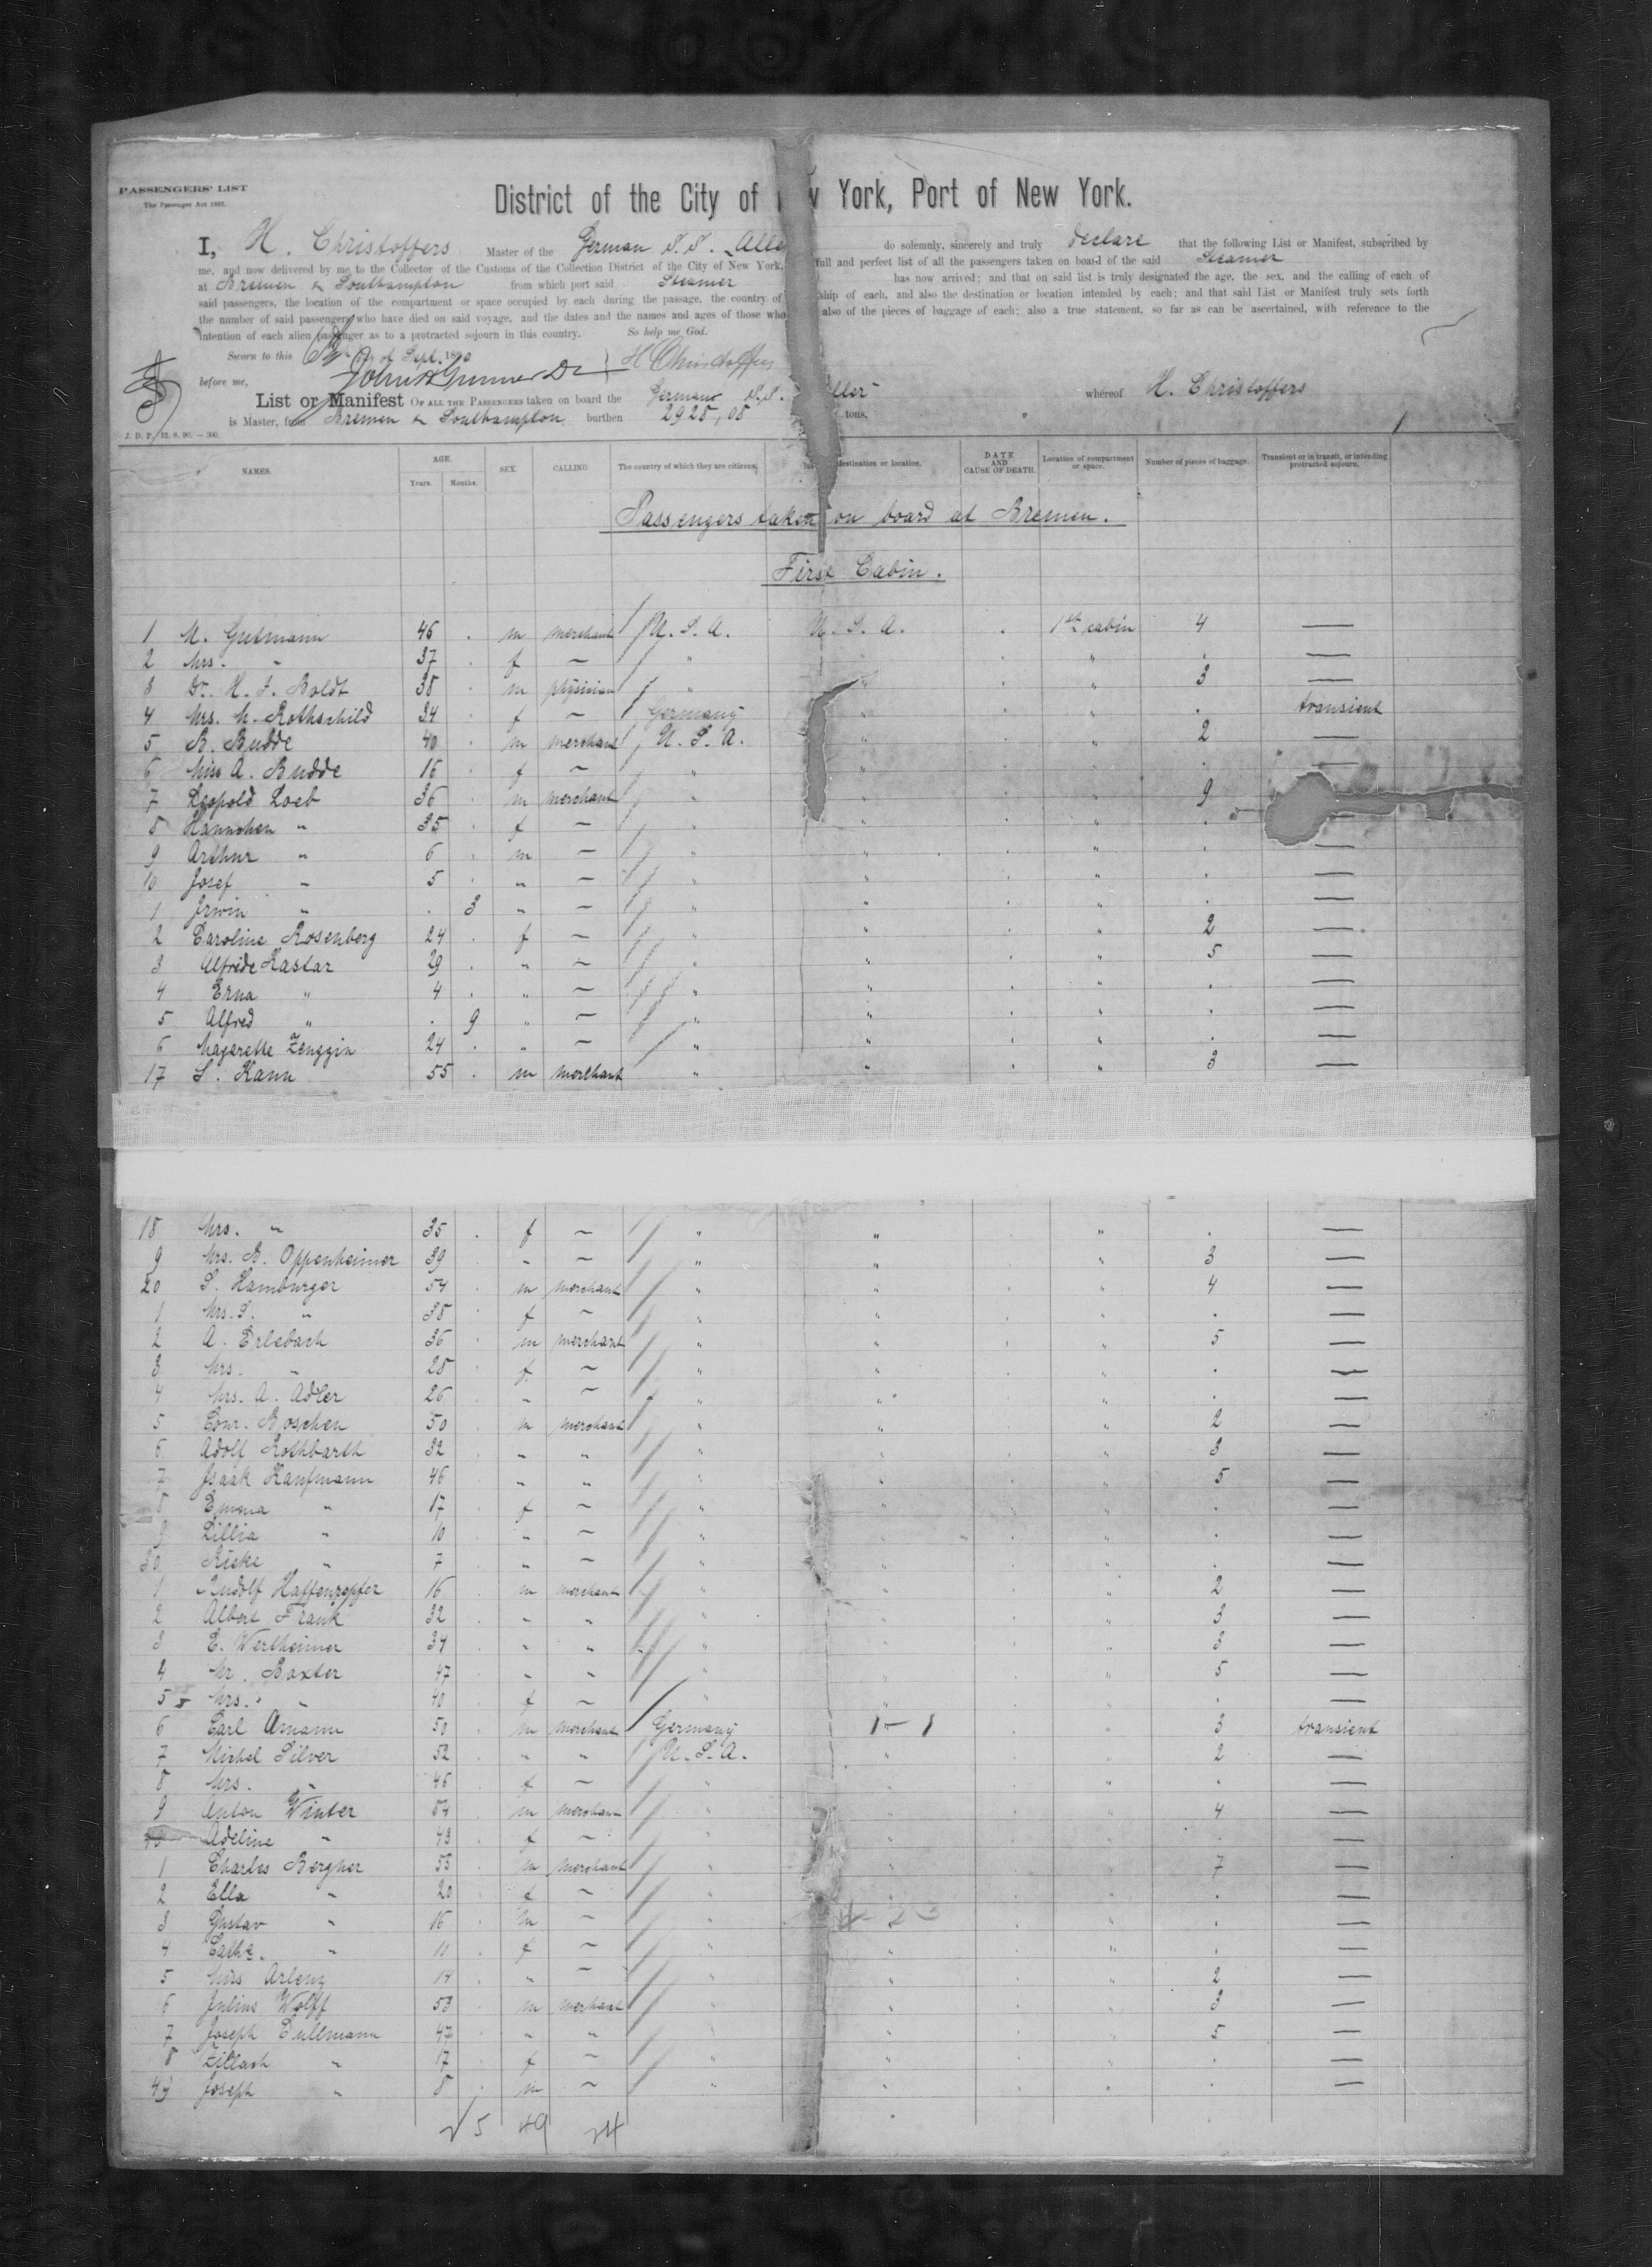 PASSENGERS' LIST
The Passenger Act 1882.
District of the City of York, Port of New York.
I, H. Christoffers Master of the German S.S. Alle do solemnly, sincerely and truly declare that the following List or Manifest, subscribed by
me, and now delivered by me to the Collector of the Customs of the Collection District of the City of New York, full and perfect list of all the passengers taken on board of the said Steamer
at Bremen & Southampton from which port said Steamer has now arrived; and that on said list is truly designated the age, the sex, and the calling of each of
said passengers, the location of the compartment or space occupied by each during the passage, the country of ship of each, and also the destination or location intended by each; and that said List or Manifest truly sets forth
the number of said passengers who have died on said voyage, and the dates and the names and ages of those who also of the pieces of baggage of each; also a true statement, so far as can be ascertained, with reference to the
intention of each alien passenger as to a protracted sojourn in this country. So help me God.
Sworn to this day of Sept. 1890 H Christoffers
before me,
List or Manifest OF ALL THE PASSENGERS taken on board the German S.S. Aller whereof H. Christoffers
is Master, from Bremen & Southampton, burthen 2928,08 tons.
J. D. P. 12. 8. 90. — 300.
NAMES. AGE. Years. Months. SEX. CALLING The country of which they are citizens. destination or location. DATE AND CAUSE OF DEATH. Location of compartment or space. Number of pieces of baggage. Transient or in transit, or intending protracted sojourn.
Passengers taken on board at Bremen.
First Cabin.
1 M. Gutmann 46 . m merchant U.S.A. U.S.A. . 1st cabin 4 —
2 Mrs. " 37 . f — " . " . —
3 Dr. H. J. Boldt 38 . m physician " " . " 3 —
4 Mrs. M. Rothschild 34 . f — Germany " . " . transient
5 B. Budde 40 . m merchant U.S.A. " . " 2 —
6 Miss A. Budde 16 . f — " " . " . —
7 Leopold Loeb 36 . m merchant " " . " 9
8 Hannchen " 35 . f — " " . " . —
9 Arthur " 6 . m — " " . " . —
10 Josef " 5 . " — " " . " . —
1 Irwin " . 3 " — " " . " . —
2 Caroline Rosenberg 24 . f — " " . " 2 —
3 Alfride Kastar 29 . " — " " . " 5 —
4 Erna " 4 . " — " " . " . —
5 Alfred " . 9 " — " " . " . —
6 Magarethe Zenggin 24 . " — " " . " . —
17 S. Kann 55 . m merchant " " " 3 —
18 Mrs. " 35 . f — " " . " . —
9 Mrs. B. Oppenheimer 39 . " — " " . " 3 —
20 S. Hamburger 54 . m merchant " " . " 4 —
1 Mrs. S. " 38 . f — " " . " . —
2 A. Erlebach 36 . m merchant " " . " 5 —
3 Mrs. " 28 . f — " " . " . —
4 Mrs. A. Adler 26 . " — " " . " . —
5 Conr. Boschen 50 . m merchant " " . " 2 —
6 Adolf Rothbarth 32 . " " " " . " 3 —
7 Isaak Kaufmann 46 . " " " " . " 5 —
8 Emma " 17 . f — " " . " . —
9 Lillia " 10 . " — " " . " . —
30 Rieke " 7 . " — " " . " . —
1 Rudolf Haffenreffer 16 . m merchant " " . " 2 —
2 Albert Frank 32 . " " " " . " 3 —
3 E. Wertheimer 34 . " " " " . " 3 —
4 Mr. Baxter 47 . " " " " . " 5 —
5 Mrs. " 40 . f — " " . " . —
6 Carl Amann 50 . m merchant Germany . " 3 transient
7 Michel Silver 52 . " " U.S.A. " . " 2 —
8 Mrs. " 46 . f — " " . " . —
9 Anton Winter 54 . m merchant " " . " 4 —
40 Adeline " 43 . f — " " . " . —
1 Charles Bergner 55 . m merchant " " . " 7 —
2 Ella " 20 . f — " " . " . —
3 Gustav " 16 . m — " . " . —
4 Cathe. " 11 . f — " " . " . —
5 Miss Arleng 14 . " — " " . " 2 —
6 Julius Wolff 53 . m merchant " " . " 3 —
7 Joseph Dullmann 47 . " " " " . " 5 —
8 Zillach " 17 . f — " " . " . —
49 Joseph " 8 . m — " " . " . —
5 49 24